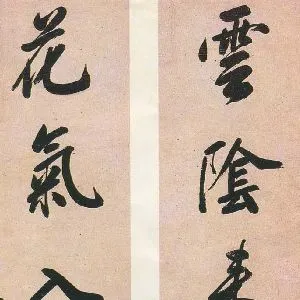 雲陰
花氣入